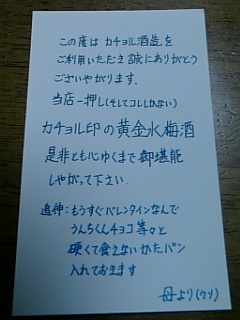 この度は カチョル酒造を
ご利用いただき誠にありがとう
ございやがります.
当店一押し(そしてコレしかない)
カチョル印の黄金水梅酒
是非とも心ゆくまで御堪能
しやがって下さい.
追伸:もうすぐバレンタインなんで
うんちくんチョコ等々と
硬くて食えないかたパン
入れておきます
母より(ウソ)